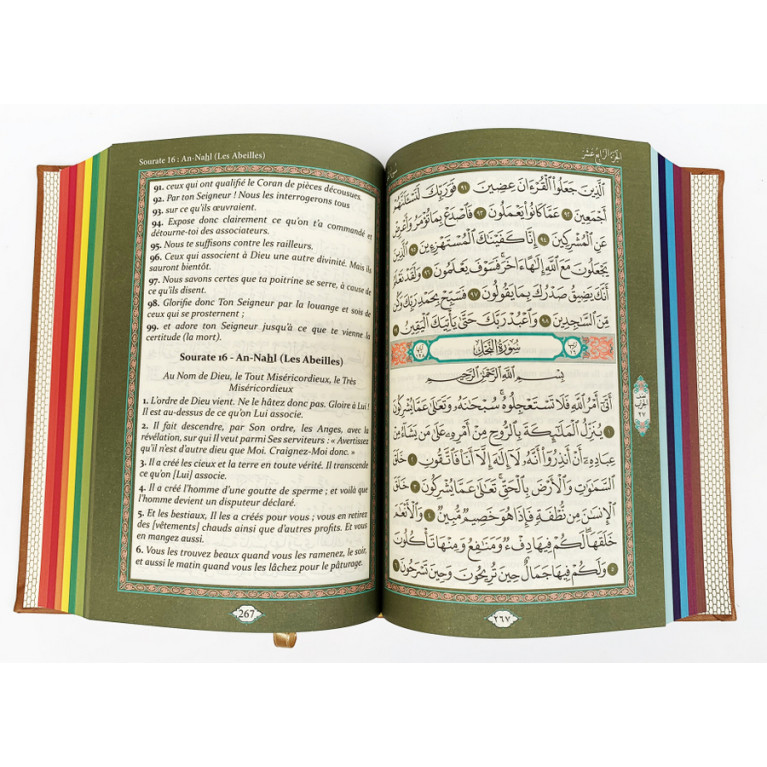 Sourate 16 : An-Nahl (Les Abeilles)
91. ceux qui ont qualifié le Coran de pièces décousues.
92. Par ton Seigneur ! Nous les interrogerons tous
93. sur ce qu'ils œuvraient.
94. Expose donc clairement ce qu'on t'a commandé et
détourne-toi des associateurs.
95. Nous te suffisons contre les railleurs.
96. Ceux qui associent à Dieu une autre divinité. Mais ils
sauront bientôt.
97. Nous savons certes que ta poitrine se serre, à cause de
ce qu'ils disent.
98. Glorifie donc Ton Seigneur par la louange et sois de
ceux qui se prosternent ;
99. et adore ton Seigneur jusqu'à ce que te vienne la
certitude (la mort).
Sourate 16 - An-Nahl (Les Abeilles)
Au Nom de Dieu, le Tout Miséricordieux, le Très
Miséricordieux
1. L'ordre de Dieu vient. Ne le hâtez donc pas. Gloire à Lui !
Il est au-dessus de ce qu'on Lui associe.
2. Il fait descendre, par Son ordre, les Anges, avec la
révélation, sur qui Il veut parmi Ses serviteurs : « Avertissez
qu'il n'est d'autre dieu que Moi. Craignez-Moi donc. »
3. Il a créé les cieux et la terre en toute vérité. Il transcende
ce qu'on [Lui] associe.
4. Il a créé l'homme d'une goutte de sperme ; et voilà que
l'homme devient un disputeur déclaré.
5. Et les bestiaux, Il les a créés pour vous ; vous en retirez
des [vêtements] chauds ainsi que d'autres profits. Et vous
en mangez aussi.
6. Vous les trouvez beaux quand vous les ramenez, le soir,
et aussi le matin quand vous les lâchez pour le pâturage.
267
الجزء الرابع عشر
الَّذِينَ جَعَلُوا الْقُرْءَانَ عِضِينَ ٩١ فَوَرَبِّكَ لَنَسْئَلَنَّهُمْ
أَجْمَعِينَ ٩٢ عَمَّا كَانُوا يَعْمَلُونَ ٩٣ فَاصْدَعْ بِمَا تُؤْمَرُ وَأَعْرِضْ
عَنِ الْمُشْرِكِينَ ٩٤ إِنَّا كَفَيْنَاكَ الْمُسْتَهْزِءِينَ ٩٥ الَّذِينَ
يَجْعَلُونَ مَعَ اللَّهِ إِلَٰهًا ءَاخَرَ فَسَوْفَ يَعْلَمُونَ ٩٦ وَلَقَدْ نَعْلَمُ
أَنَّكَ يَضِيقُ صَدْرُكَ بِمَا يَقُولُونَ ٩٧ فَسَبِّحْ بِحَمْدِ رَبِّكَ وَكُنْ
مِنَ السَّاجِدِينَ ٩٨ وَاعْبُدْ رَبَّكَ حَتَّىٰ يَأْتِيَكَ الْيَقِينُ ٩٩
سُورَةُ النَّحْلِ
بِسْمِ اللَّهِ الرَّحْمَٰنِ الرَّحِيمِ
أَتَىٰ أَمْرُ اللَّهِ فَلَا تَسْتَعْجِلُوهُ سُبْحَانَهُ وَتَعَالَىٰ عَمَّا يُشْرِكُونَ
١ يُنَزِّلُ الْمَلَائِكَةَ بِالرُّوحِ مِنْ أَمْرِهِ عَلَىٰ مَنْ يَشَاءُ مِنْ
عِبَادِهِ أَنْ أَنْذِرُوا أَنَّهُ لَا إِلَٰهَ إِلَّا أَنَا فَاتَّقُونِ ٢ خَلَقَ
السَّمَاوَاتِ وَالْأَرْضَ بِالْحَقِّ تَعَالَىٰ عَمَّا يُشْرِكُونَ ٣ خَلَقَ
الْإِنْسَانَ مِنْ نُطْفَةٍ فَإِذَا هُوَ خَصِيمٌ مُبِينٌ ٤ وَالْأَنْعَامَ
خَلَقَهَا لَكُمْ فِيهَا دِفْءٌ وَمَنَافِعُ وَمِنْهَا تَأْكُلُونَ
٥ وَلَكُمْ فِيهَا جَمَالٌ حِينَ تُرِيحُونَ وَحِينَ تَسْرَحُونَ ٦
٢٦٧